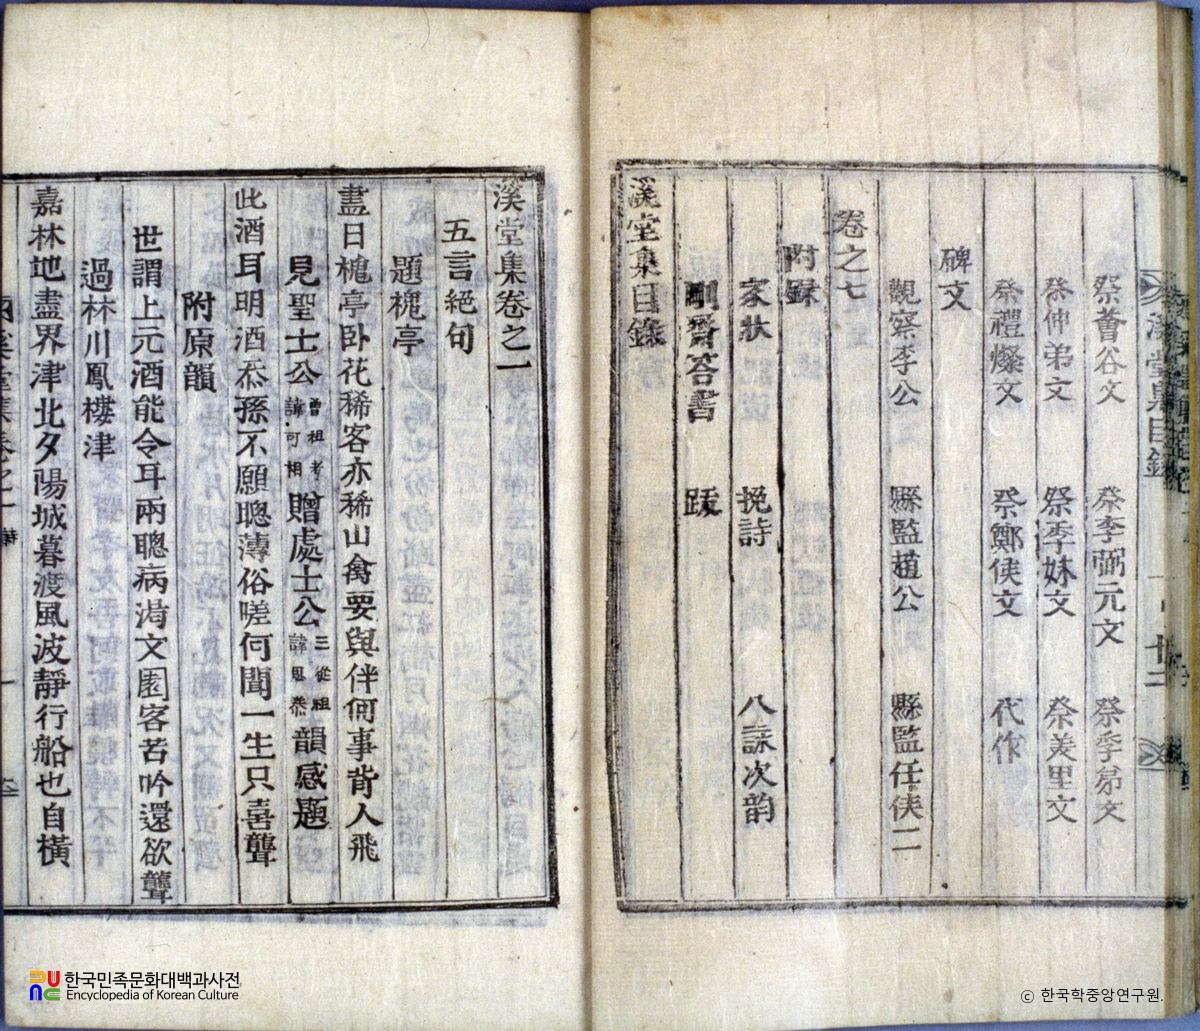 祭蒼谷文 祭李弼元文 祭季弟文
祭仲弟文 祭季妹文 祭姜里文
祭禮燦文 祭鄭俠文 代作
碑文
觀察李公 縣監趙公 縣監任侯二
卷之七
附錄
家狀 挽詩 八詠次韵
剛齋答書 跋
溪堂集目錄
溪堂集卷之一
五言絕句
題槐亭
晝日槐亭卧花稀客亦稀山禽要與伴何事背人飛
見聖士公曾祖考諱可相贈處士公三從祖諱思恭韻感題
此酒耳明酒忝孫不願聰薄俗嗟何聞一生只喜聾
附原韻
世謂上元酒能令耳兩聰病渴文園客苦吟還欲聾
過林川鳳樓津
嘉林地盡界津北夕陽城暮渡風波靜行船也自橫
한국민족문화대백과사전
Encyclopedia of Korean Culture
ⓒ 한국학중앙연구원.